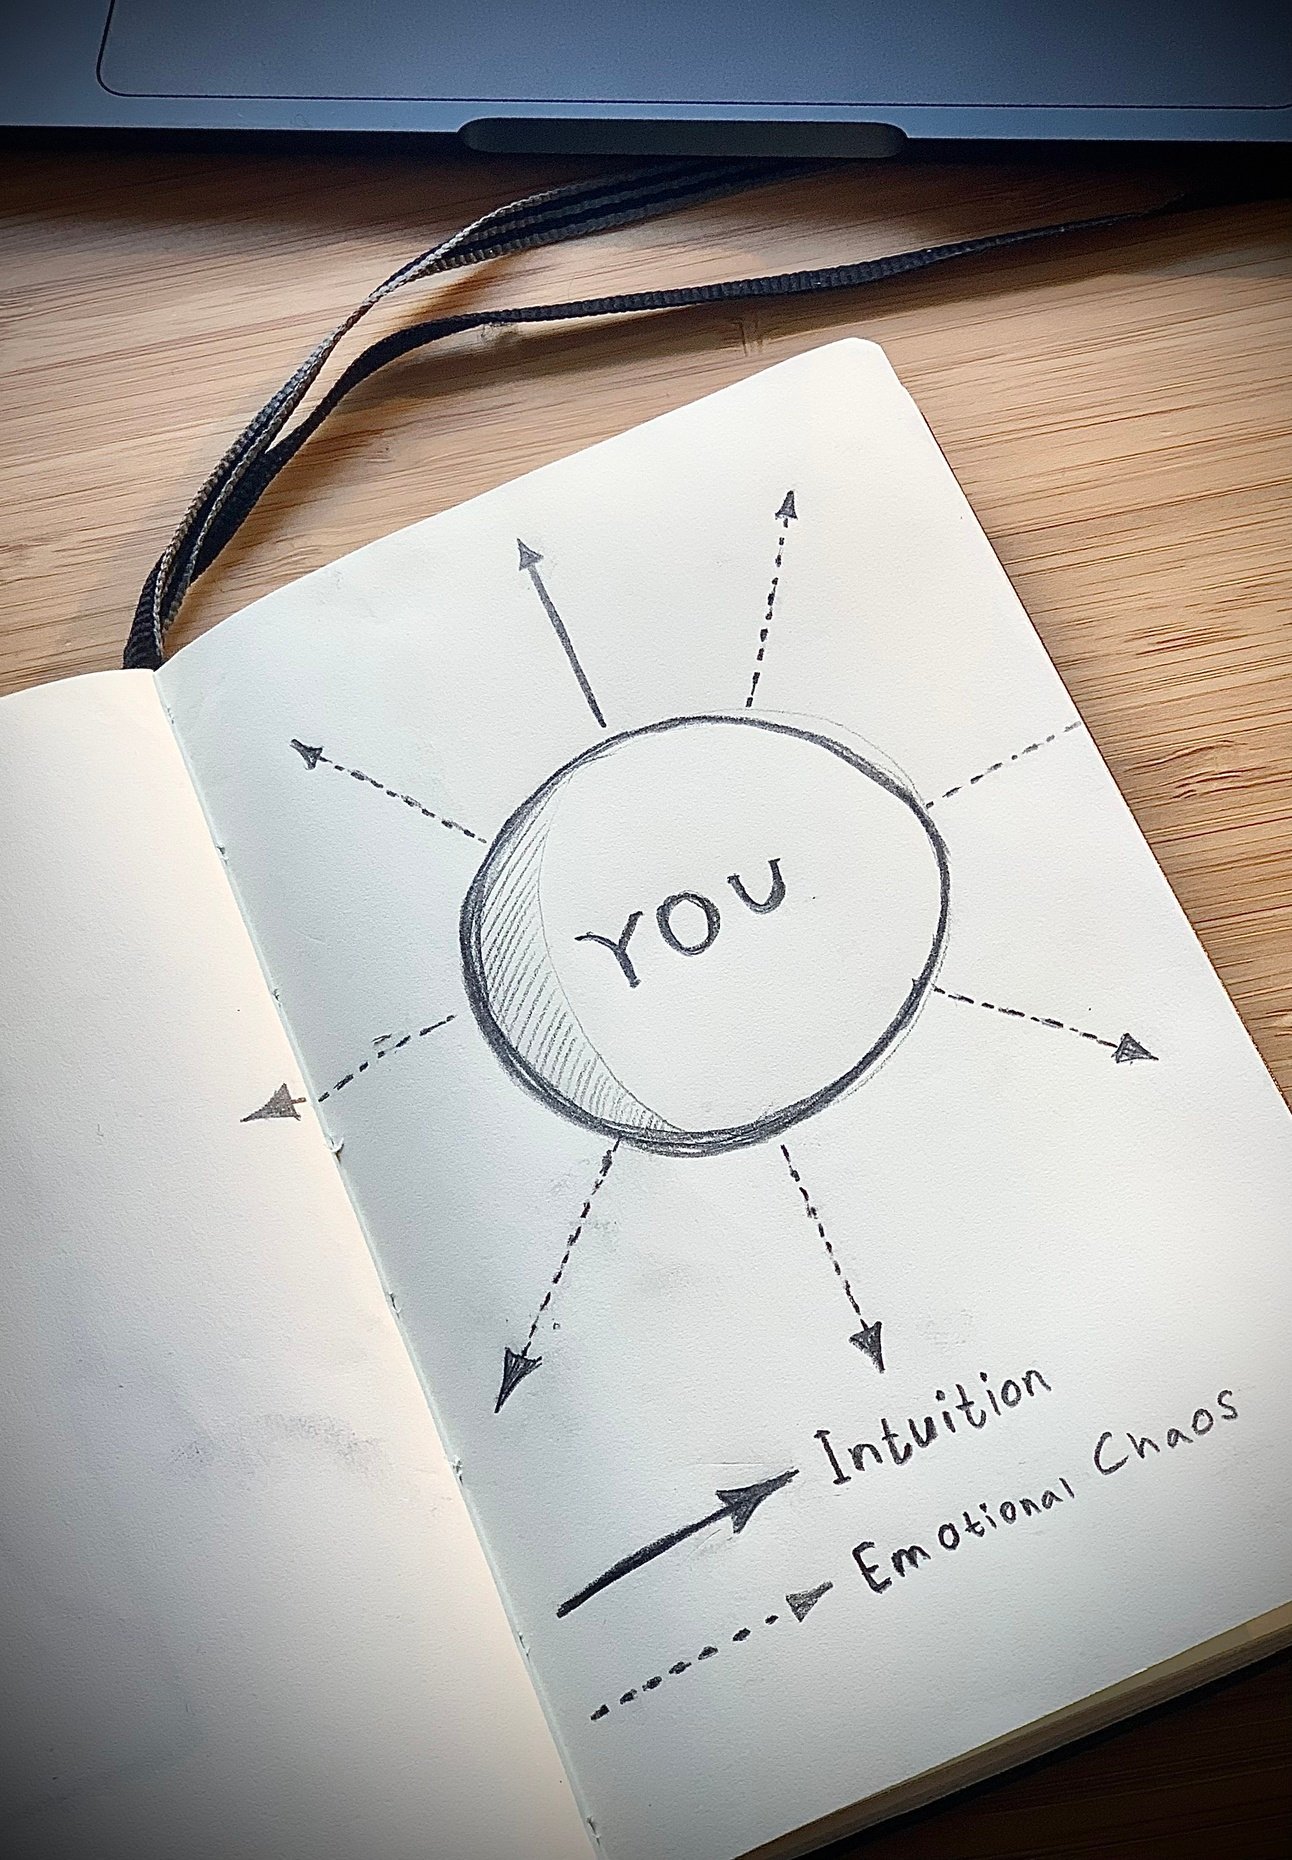 YOU
Intuition
Emotional Chaos